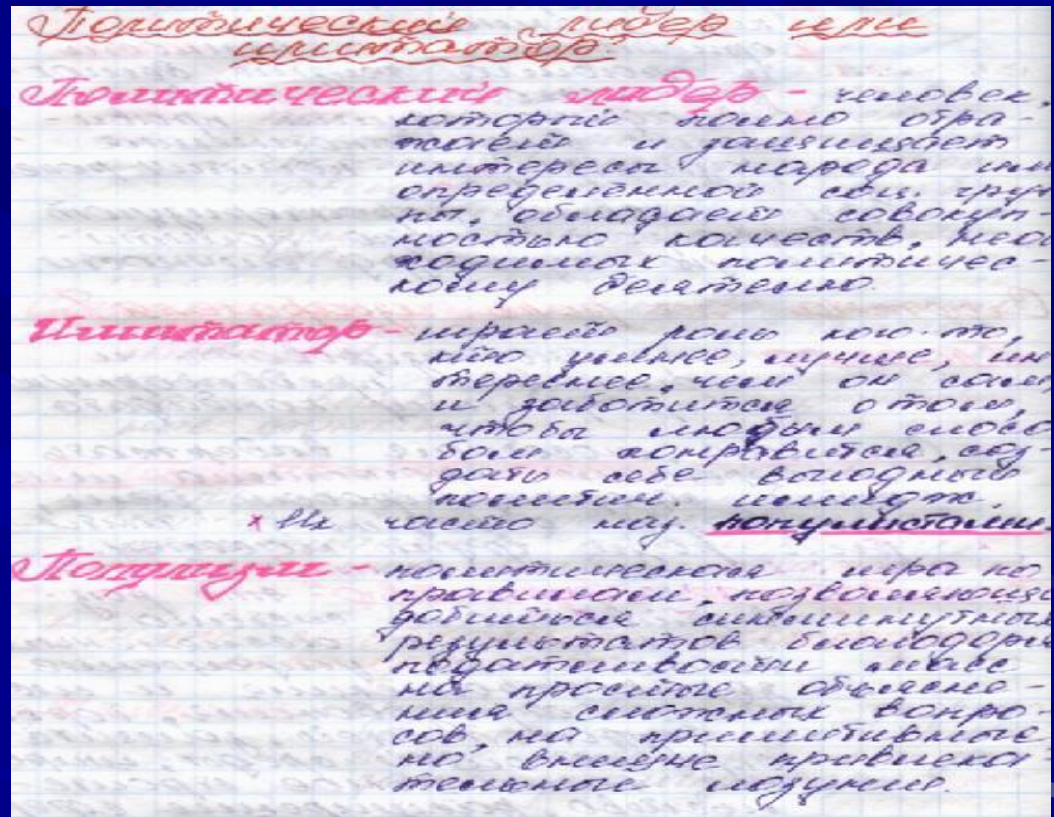 Политический лидер или
имитатор?
Политический лидер - человек,
который полно отра-
жает и защищает
интересы народа или
определённой соц. груп
пы, обладает совокуп-
ностью качеств, необ
ходимых политичес-
кому деятелю.
Имитатор - играет роль кого-то,
кто умнее, лучше, ин
тереснее, чем он сам,
и заботится о том,
чтобы любым спосо
бом понравиться, соз-
дать себе выгодный
политич. имидж.
x Их часто наз. популистами.
Популизм - политическая игра по
правилам, позволяющая
добиться сиюминутных
результатов благодаря
податливости масс
на простые объясне-
ния сложных вопро-
сов, на примитивные,
но внешне привлека-
тельные лозунги.